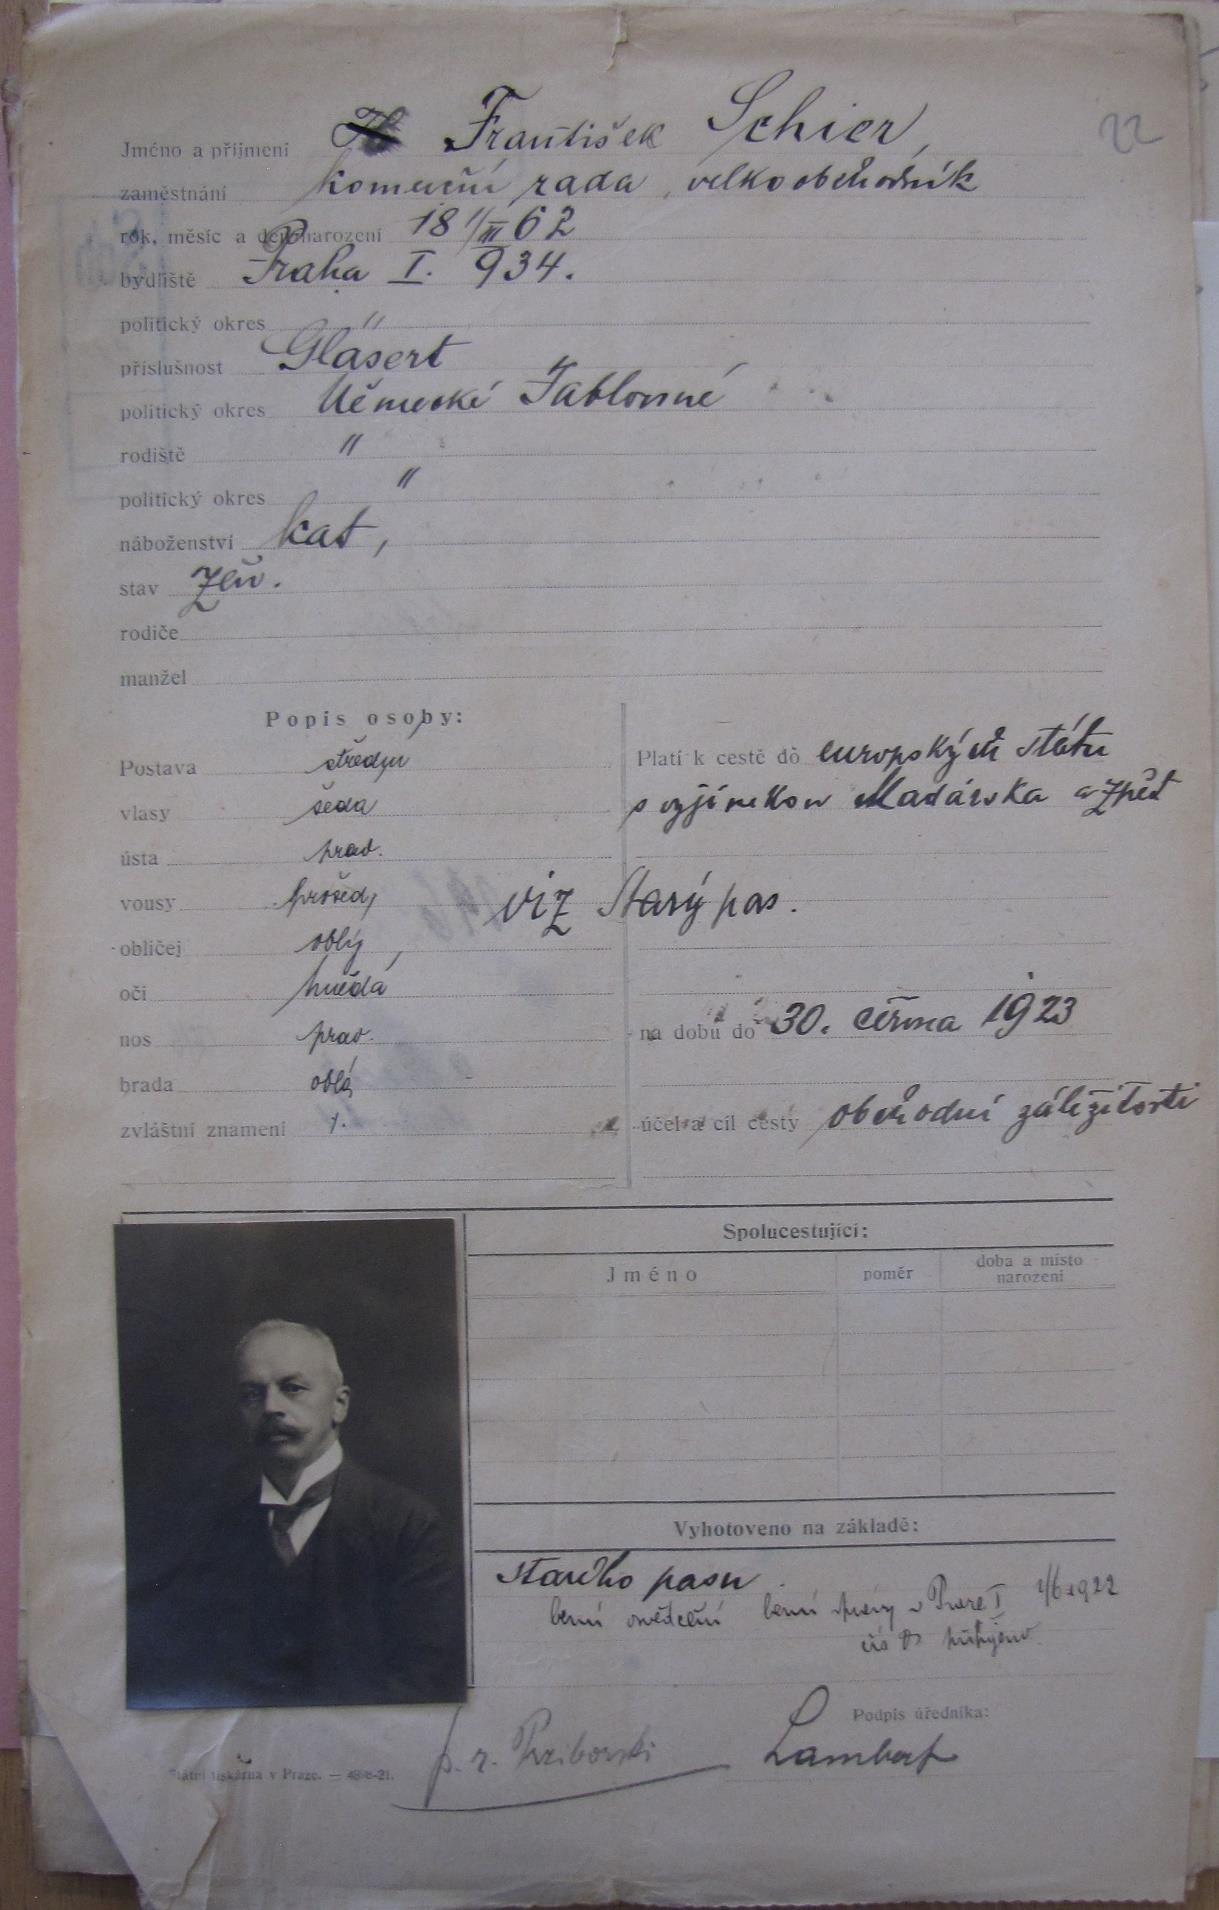 22
Jméno a příjmení František Schier,
zaměstnání komerční rada, velkoobchodník
rok, měsíc a den narození 18 11/III 62
bydliště Praha I. 934.
politický okres "
příslušnost Gläsert
politický okres Německé Jablonné
rodiště "
politický okres "
náboženství kat,
stav žen.
rodiče
manžel
Popis osoby:
Postava střední
vlasy šedá
ústa prav.
vousy prošed,
obličej oblý,
oči hnědá
nos prav.
brada oblá
zvláštní znamení
Platí k cestě do europských států
s vyjímkou Maďarska a zpět
viz Starý pas.
na dobu do 30. června 1923
účel a cíl cesty obchodní záležitosti
Spolucestující:
Jméno poměr doba a místo narození
Vyhotoveno na základě:
starého pasu
berní osvědčení berní správy v Praze I 1/6 1922
Podpis úředníka:
Lambert
Státní tiskárna v Praze. —